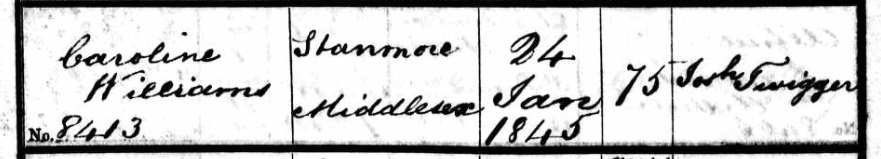 Caroline
Williams
No. 8413
Stanmore
Middlesex
24
Jan
1845
75
Josh Twigger